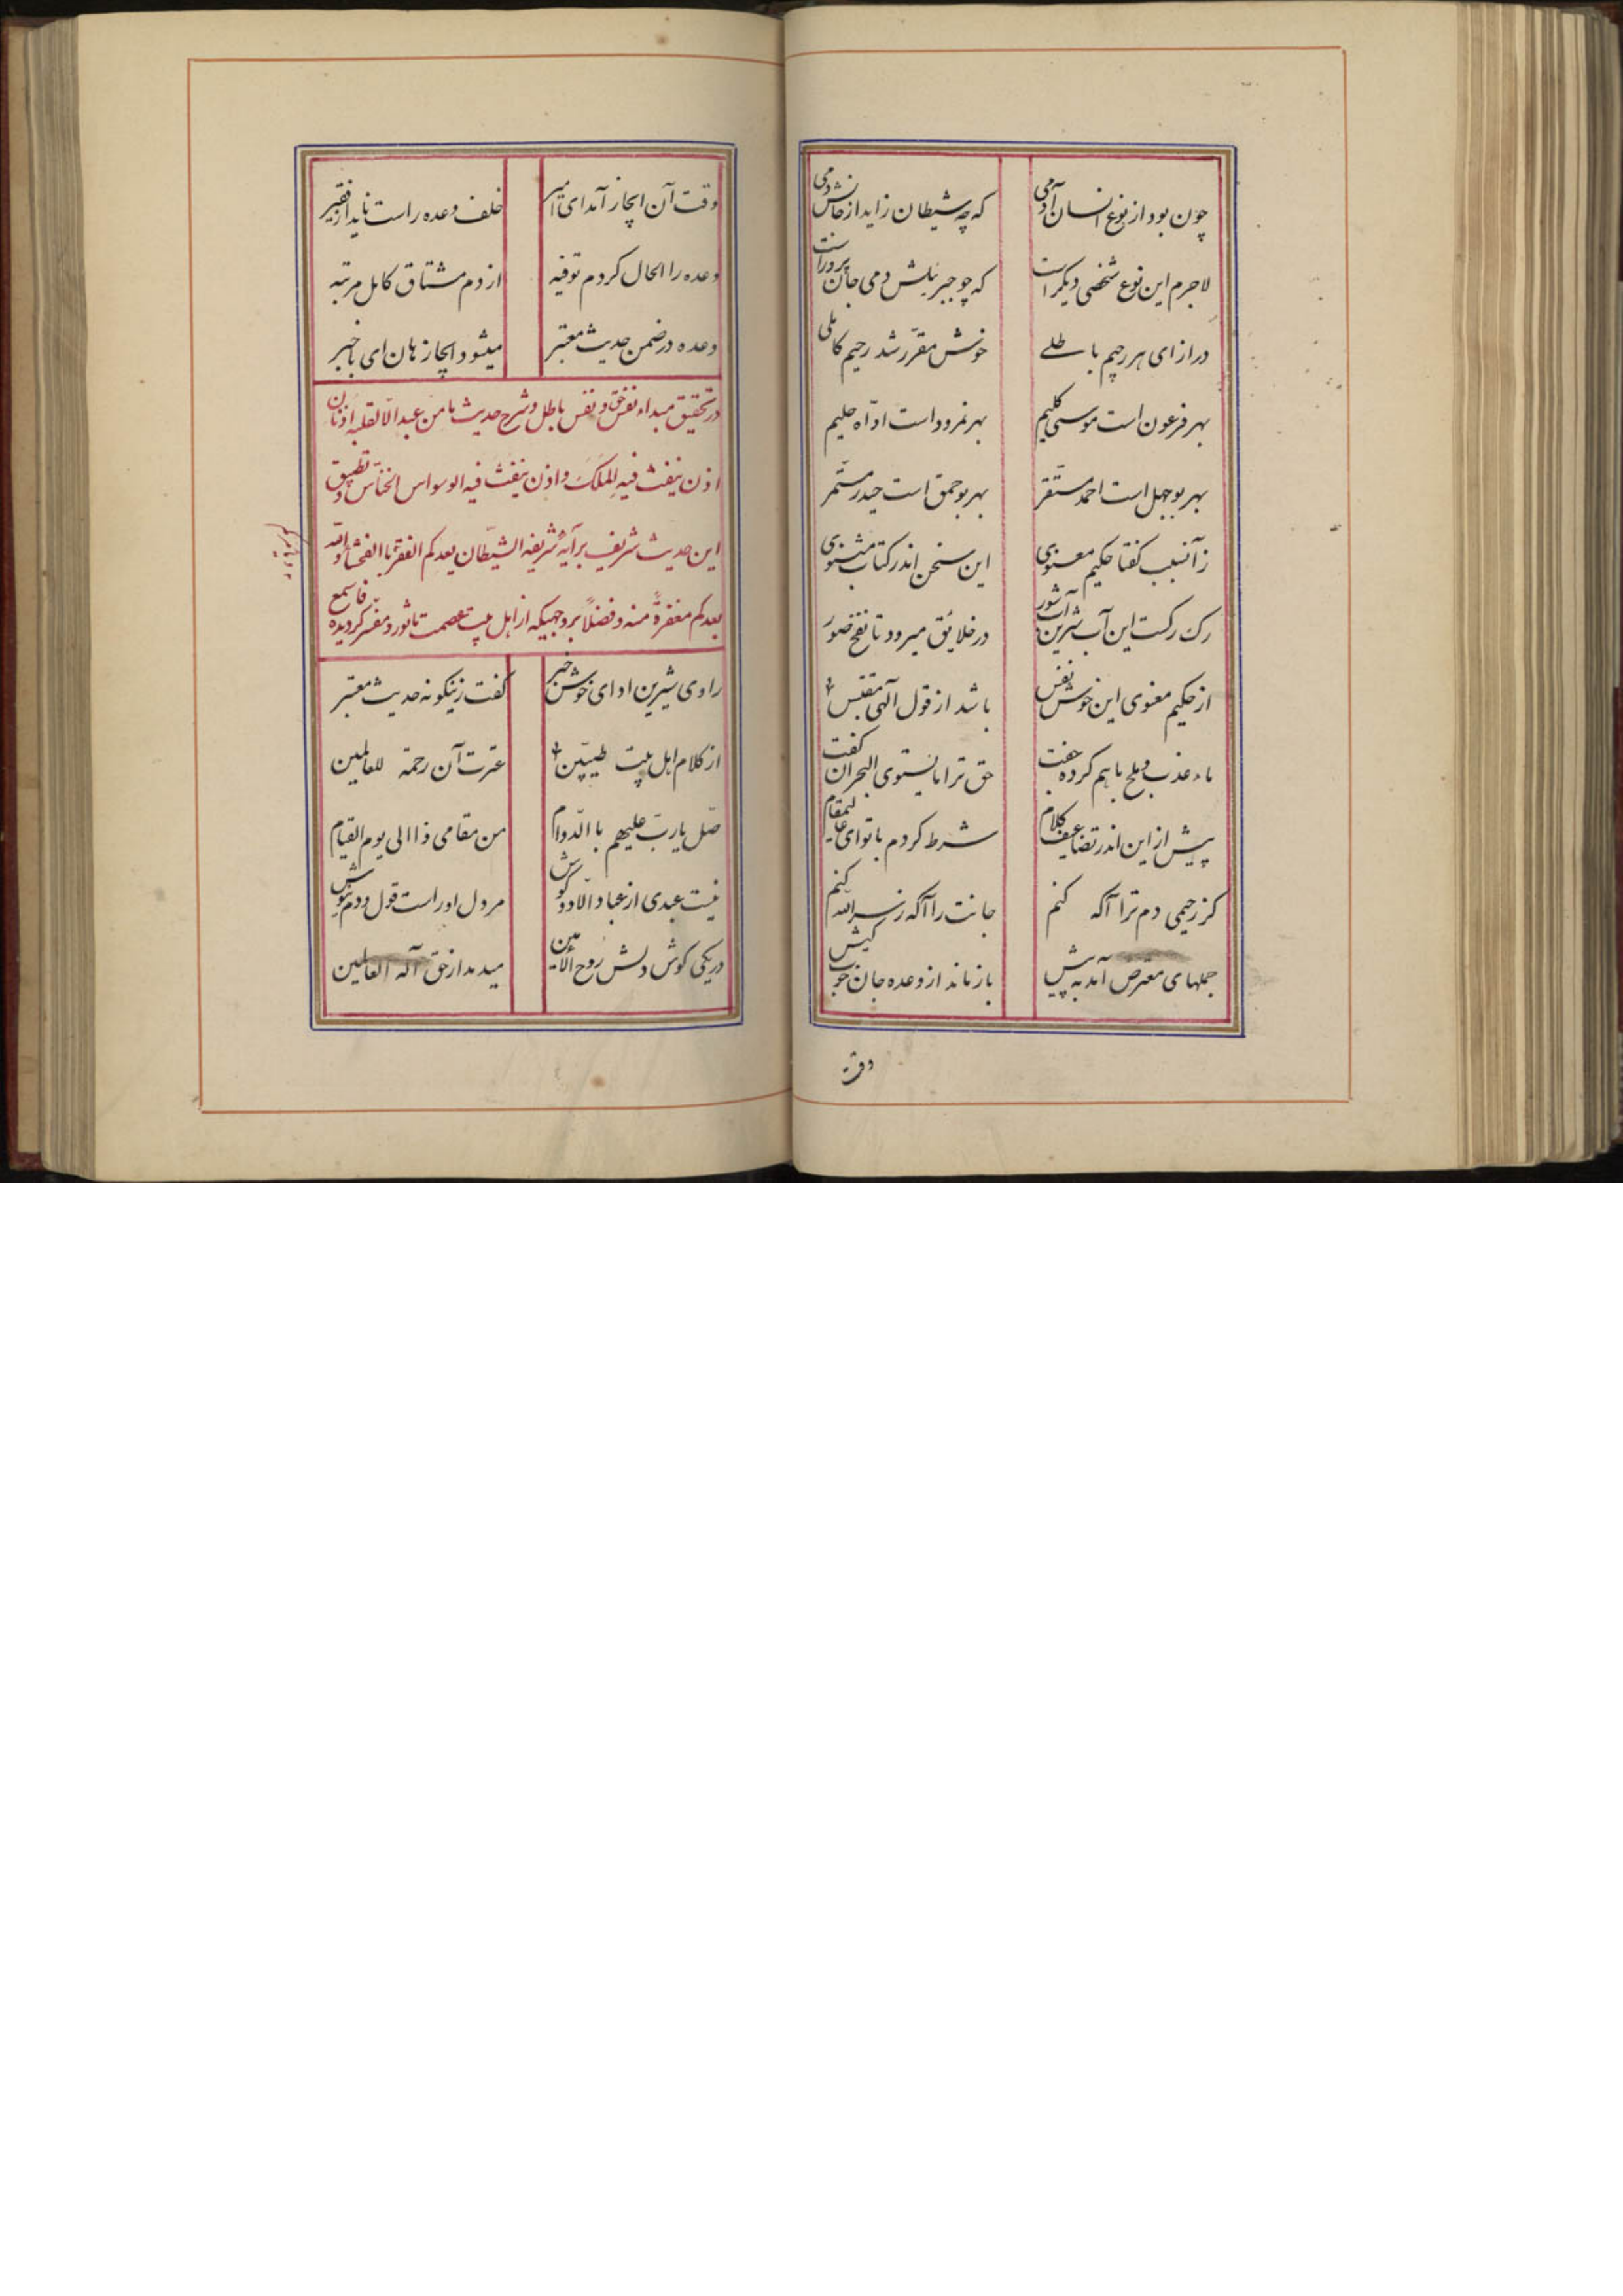 چون بود از نوع انسان آدمی که چه شیطان زاید از جانش دمی
لاجرم این نوع شخصی دیکر است که چو جبریلش دمی جان پرور است
در ازای هر رجیم باطلے خوش مقرّر شد رحیم کاملی
بهر فرعون است موسی کلیم بهر نمرود است اوّاه حلیم
بهر بوجهل است احمد مستقر بهر بوحمق است حیدر مستمّر
زآنسبب کفتا حکیم معنوی این سخن اندر کتاب مثنوی
رک رکست این آب شیرین آب شور در خلائق میرود تا نفخ صور
از حکیم معنوی این خوش نفس باشد از قول آلهی مقتبس
ماء عذب و ملح با هم کرده جفت حق ترا ما یستوی البحران کفت
پیش از این اندر تضاعیف کلام شرط کردم با تو ای عالیمقام
کز رحیمی دم ترا آکه کنم جانت را آکه ز سرالله کنم
جملهای معترض آمد به پیش باز ماند از وعده جان خوب کیش
وقت
وقت آن انجاز آمد ای امیر خلف وعده راست ناید از فقیر
وعده را الحال کردم توفیه از دم مشتاق کامل مرتبه
وعده در ضمن حدیث معتبر میشود انجاز هان ای باخبر
در تحقیق مبداء نفس حق و نفس باطل و شرح حدیث ما من عبد الّا لقلبه اذنان
اذن ینفث فیه الملک و اذن ینفث فیه الوسواس الخنّاس و تطبیق
این حدیث شریف بر آیهٔ شریفه الشیطان یعدکم الفقر باالفحشاء والله
یعدکم مغفرةً منه و فضلاً بروجهیکه از اهل بیت عصمت ماثور و مفسّر کردیده فاسمع
و یامرکم
راوی شیرین ادای خوش خبر کفت زینکونه حدیث معتبر
از کلام اهل بیت طیّبین عترت آن رحمة للعالمین
صّل یا ربّ علیهم باالدّوام من مقامی ذا الی یوم القیام
نیست عبدی از عباد الّا دو کوش مر دل او راست قول و دم نیوش
در یکی کوش دلش روح الأمین میدمد از حق آله العالمین